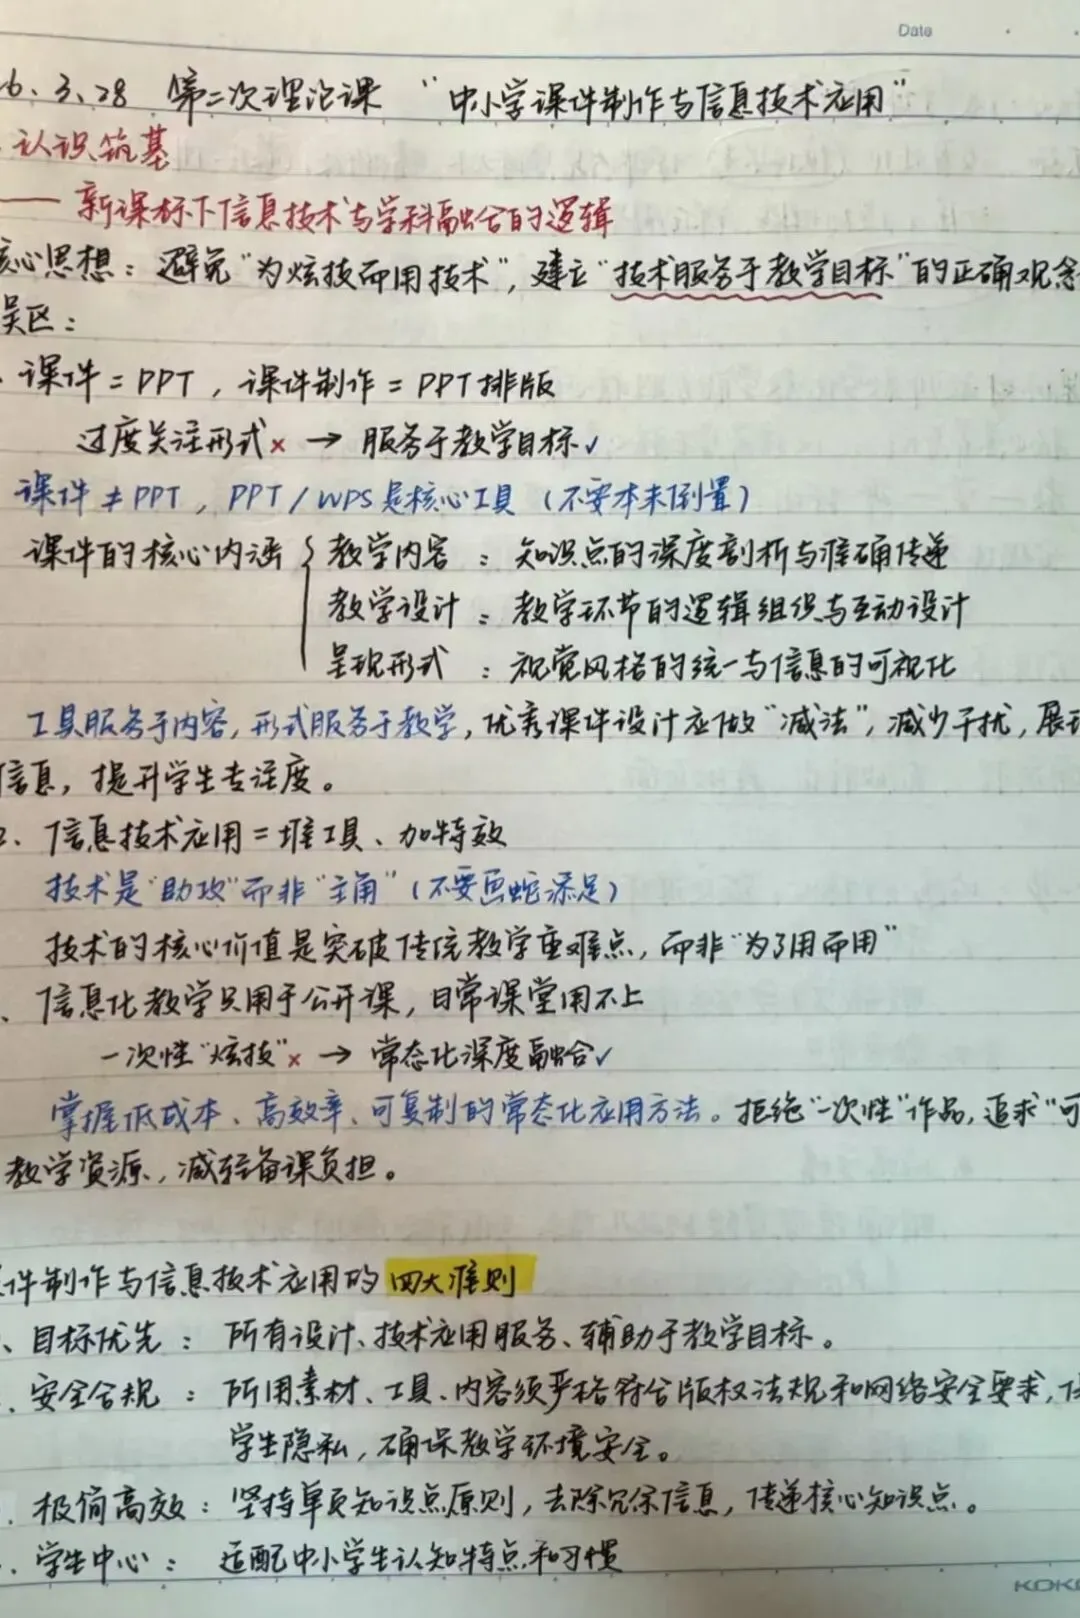 Date
6.3.28 第二次理论课 “中小学课件制作与信息技术应用”
认识筑基
—— 新课标下信息技术与学科融合的逻辑
核心思想：避免“为炫技而用技术”，建立“技术服务于教学目标”的正确观念
误区：
、课件=PPT，课件制作=PPT排版
过度关注形式× → 服务于教学目标✓
课件≠PPT，PPT/WPS是核心工具（不要本末倒置）
课件的核心内涵{ 教学内容：知识点的深度剖析与准确传递
教学设计：教学环节的逻辑组织与互动设计
呈现形式：视觉风格的统一与信息的可视化
工具服务于内容，形式服务于教学，优秀课件设计应做“减法”，减少干扰，展现
信息，提升学生专注度。
2、信息技术应用=堆工具、加特效
技术是“助攻”而非“主角”（不要画蛇添足）
技术的核心价值是突破传统教学重难点，而非“为了用而用”
、信息化教学只用于公开课，日常课堂用不上
一次性“炫技”× → 常态化深度融合✓
掌握低成本、高效率、可复制的常态化应用方法。拒绝“一次性”作品，追求“可
教学资源，减轻备课负担。
件制作与信息技术应用的四大准则
、目标优先：所有设计、技术应用服务、辅助于教学目标。
、安全合规：所用素材、工具、内容须严格符合版权法规和网络安全要求，
学生隐私，确保教学环境安全。
、极简高效：坚持单页知识点原则，去除冗余信息，传递核心知识点。
、学生中心：适配中小学生认知特点和习惯
KOK